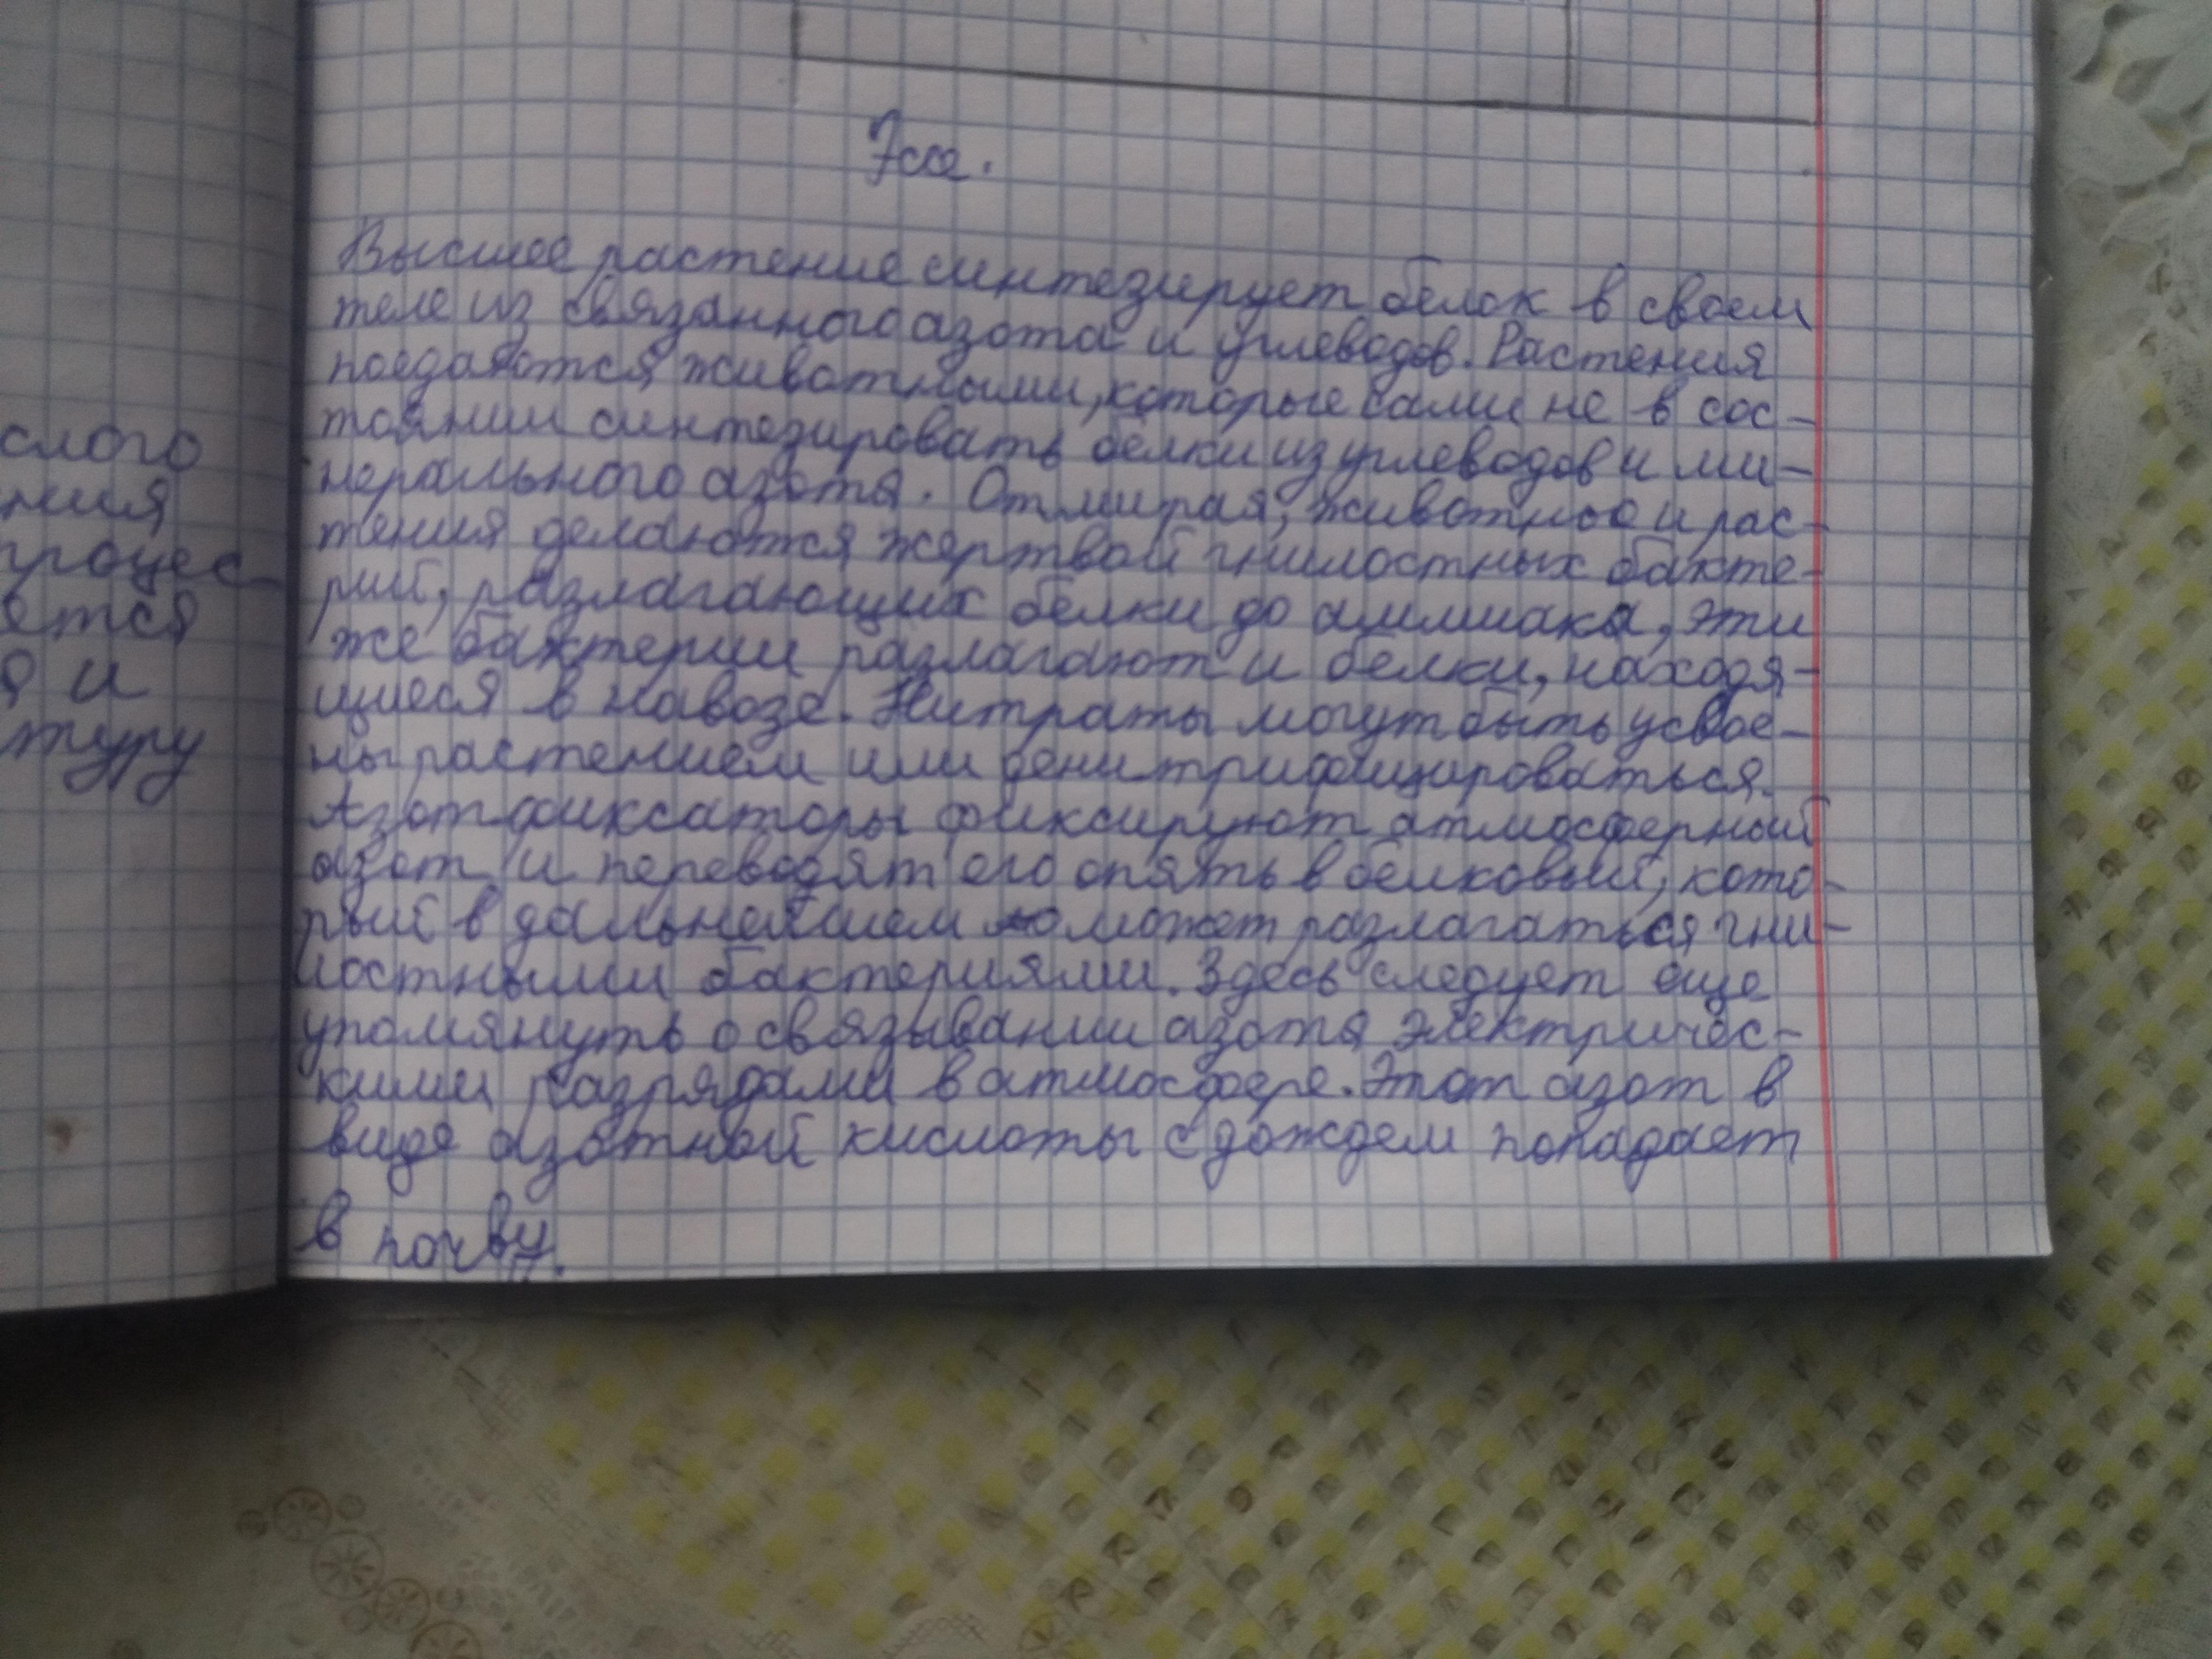 слого
ния
процес-
ется
я и
туру
Эссе.
Высшее растение синтезирует белок в своем
теле из связанного азота и углеводов. Растения
поедаются животными, которые сами не в сос-
тоянии синтезировать белки из углеводов и ми-
нерального азота. Отмирая, животное и рас-
тения делаются жертвой гнилостных бакте-
рий, разлагающих белки до аммиака, эти
же бактерии разлагают и белки, находя-
щиеся в навозе. Нитраты могут быть усвое-
ны растением или денитрифицироваться.
Азотфиксаторы фиксируют атмосферный
азот и переводят его опять в белковый, кото-
рый в дальнейшем может разлагаться гни-
лостными бактериями. Здесь следует еще
упомянуть о связывании азота электричес-
кими разрядами в атмосфере. Этот азот в
виде азотной кислоты с дождем попадает
в почву.